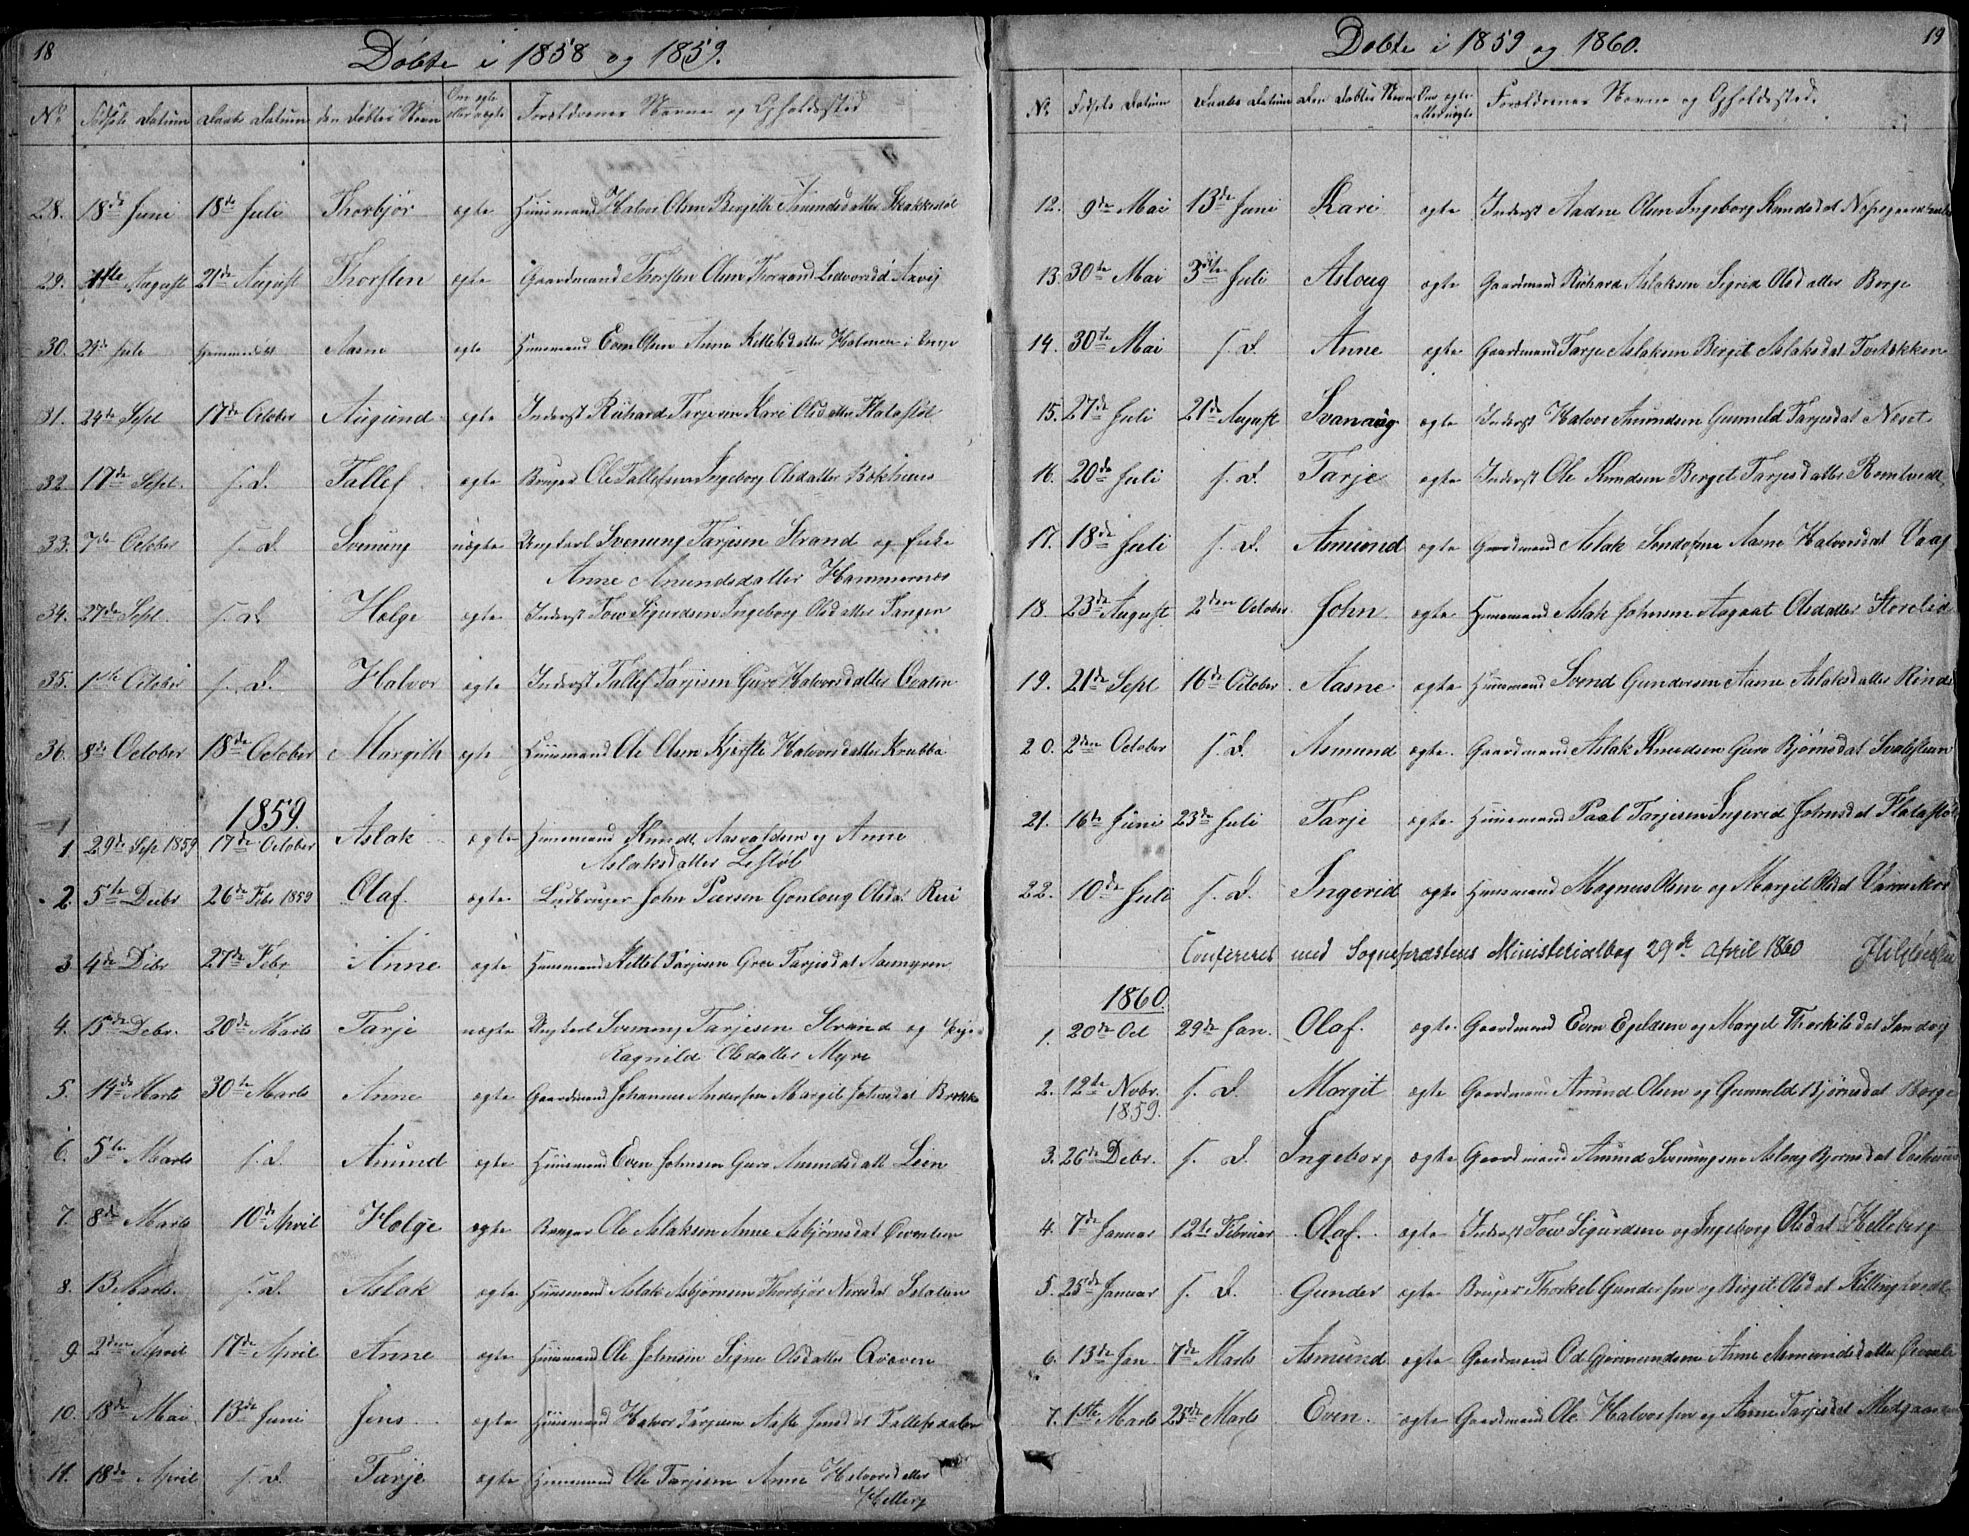 18
Döbte i 1858 og 1859.
No Födsels Datum Daabs Datum den Döbtes Navn Om egte eller uegte Forældrenes Navne og Opholdssted
28. 18de Juni 18de Juli Thorbjör ægte Huusmand Halvor Olsen Bergith Amundsdatter
29. 11te August 21de August Thorsten ægte Gaardmand Thorsten Olsen Thorand
30. 24de Juli Hjemmedöbt Aasne ægte Huusmand Even Olsen Anne Kittelsdatter Holmen i
31. 24de Sept 17de October Augund ægte Inderst Richard Tarjesen Kari Olsdatter Flatestöl
32 17de Sept. s. D. Tallef ægte Bruger Ole Tallefsen Ingeborg Olsdatter
33. 7de October s. D. Svenung uægte Ungkarl Svenung Tarjesen Strand og Pike
Anne Anundsdatter Hammernes
34. 27de Sept. s. D. Helge ægte Inderst Tow Sigurdsen Ingeborg Olsdatter Tangen
35. 1ste October s. D. Halvor ægte Inderst Tallef Tarjesen Guro Halvorsdatter
36. 8de October 18de October Margith ægte Huusmand Ole Olsen Kjerste Halvorsdatter Krubba
1859.
1. 29de Sep 1859 17de October Aslak ægte Huusmand Knudt Aasvaldsen og Anne
Aslaksdatter Lestöl
2. 5te Debr 26de Febr 1859 Olaf. ægte Ludbruger John Persen Gonloug Olsdat Rui
3 4de Debr 27de Febr Anne ægte Huusmand Kittel Tarjesen Gro Tarjesdat Aasmyren
4. 15de Debr. 20de Marts Tarje uægte Ungkarl Svenung Tarjesen Strand og Pige
Ragnild Olsdatter Myre
5. 14de Marts 30te Marts Anne ægte Gaardmand Johannes Andersen Margit Johnsdat Brekke
6. 5te Marts s. D. Anund ægte Huusmand Even Johnsen Guro Anundsdatt Leen
7. 8de Marts 10de April Helge ægte Bruger Ole Aslaksen Anne Asbjörnsdat
8. 13 Marts. s. D. Aslak ægte Huusmand Aslak Asbjörnsen Thorbjör
9 2den April 17de April Anne ægte Huusmand Ole Johnsen Signe Olsdatter Qvaven
10. 18de Mai 13de Juni Jens ægte Huusmand Halvor Tarjesen Aaste Jensdat Tallefsdalen
11. 18de April s. D. Tarje ægte Huusmand Ole Tarjesen Anne Halvorsdatter
19
Döbte i 1859 og 1860.
No Födsels Datum Daabs Datum Den Döbtes Navn Om egte eller uegte Forældrenes Navne og Opholdssted.
12. 9de Mai 13de Juni Kari ægte Inderst Aadne Olsen Ingeborg Knudsdat
13. 30te Mai 3die Juli Asloug ægte Gaardmand Richard Aslaksen Sigrid Olsdatter Berge
14. 30te Mai s. D. Anne ægte Gaardmand Tarje Aslaksen Bergit Aslaksdat
15. 27de Juli 21de August Svanaug ægte Inderst Halvor Amundsen Gunnild Tarjesdat Neset
16. 20de Juli s. D. Tarje ægte Inderst Ole Knudsen Bergit Tarjesdatter Romtvedt
17. 18de Juli s. D. Asmund ægte Gaardmand Aslak Aasne Halvorsdat Vaag
18. 23de August 2den October John ægte Huusmand Aslak Johnsen Aagaat Olsdatter Storelid
19. 21de Sept 16de October Aasne ægte Huusmand Svend Gundersen Aasne Aslaksdatter
20. 2den October s. D. Asmund ægte Gaardmand Aslak Knudsen Guro Björnsdat
21. 16te Juni 23de Juli Tarje ægte Huusmand Paal Tarjesen Ingerid Johnsdat Flatestöl
22. 10de Juli s. D. Ingerid ægte Huusmand Magnus Olsen og Margit Olsdat
Confereret med Sognepræstens Ministerialbog 29de April 1860
1860.
1. 20de Oct 29de Jan. Olaf. ægte Gaardmand Even Egeldsen og Margit Thorkilsdat Sandvig
2. 12te Nobr. 1859. s. D. Margit ægte Gaardmand Anund Olsen og Gunnild Björnsdat Berge
3. 26de Debr. s. D. Ingeborg ægte Gaardmand Anund Svenungsen Aslaug Bjornsdat
4. 7de Januar 12te Februar Olaf. ægte Inderst Tow Sigurdsen og Ingeborg Olsdat Helleberg
5. 25de Januar s. D. Gunder ægte Bruger Thorkel Gundersen og Birgit Olsdat
6. 13de Jan 7de Marts Asmund ægte Gaardmand Od Gjermundsen Anne Asmundsdatter
7. 1ste Marts 25de Marts Even. ægte Gaardmand Ole Halvorsen og Anne Tarjesdat